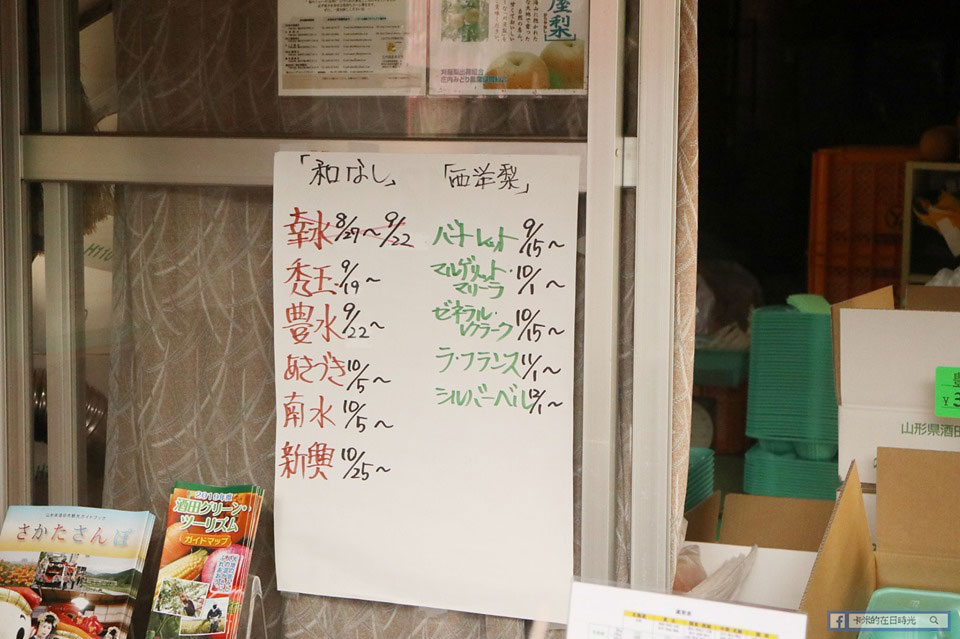 屋梨
刈屋梨出荷組合
「和なし」
幸水 8/27〜9/22
秀玉 9/19〜
豊水 9/22〜
あきづき 10/5〜
南水 10/5〜
新興 10/25〜
「西洋梨」
バートレット 9/15〜
マルゲリット・
マリーラ 10/1〜
ゼネラル・
レクラーク 10/15〜
ラ・フランス 11/1〜
シルバーベル 12/1〜
H110
さかたさんぽ
2019年度
酒田グリーン・
ツーリズム
ガイドマップ
山形県酒田
¥3
卡米的在日時光